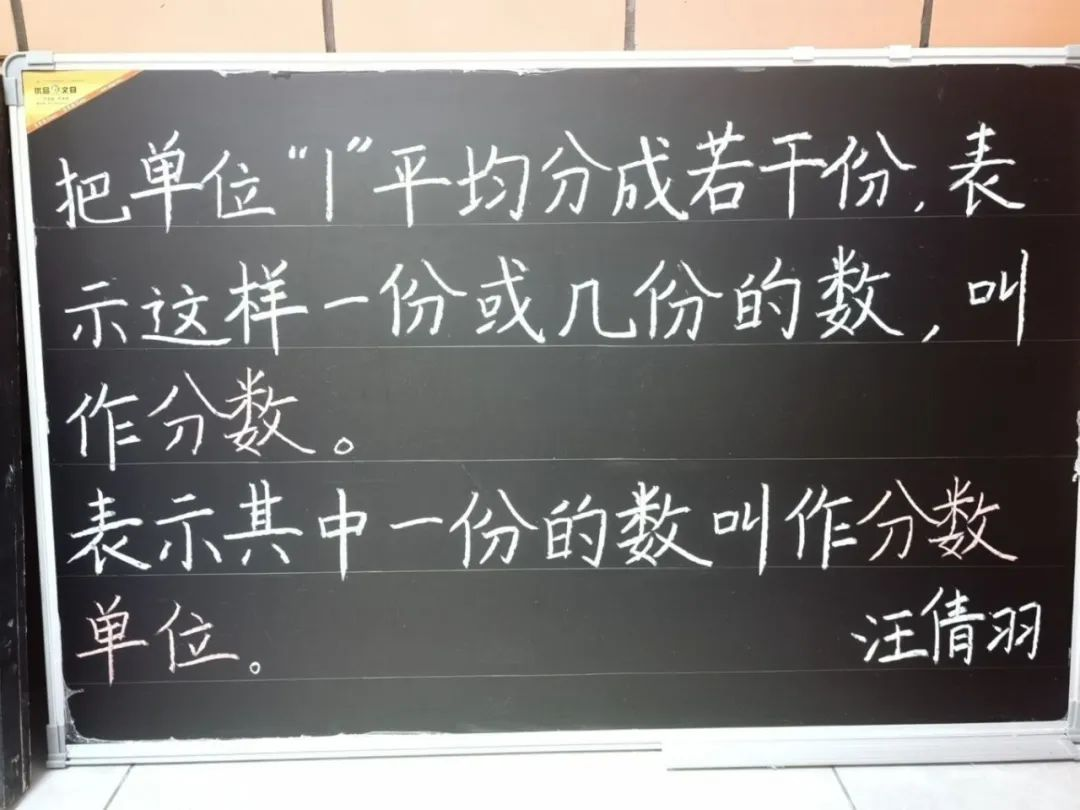 把单位“1”平均分成若干份，表
示这样一份或几份的数，叫
作分数。
表示其中一份的数叫作分数
单位。
汪倩羽